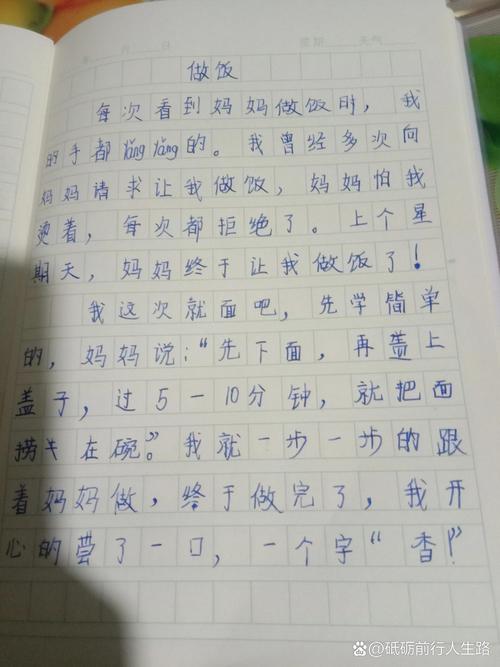 年 月 日 星期 天气
做饭
每次看到妈妈做饭时，我
的手都yǎng yǎng的。我曾经多次向
妈妈请求让我做饭，妈妈怕我
烫着，每次都拒绝了。上个星
期天，妈妈终于让我做饭了！
我这次就面吧，先学简单
的，妈妈说：“先下面，再盖上
盖子，过5一10分钟，就把面
捞 在碗。”我就一步一步的跟
着妈妈做，终于做完了，我开
心的尝了一口，一个字“香！”
@砥砺前行人生路